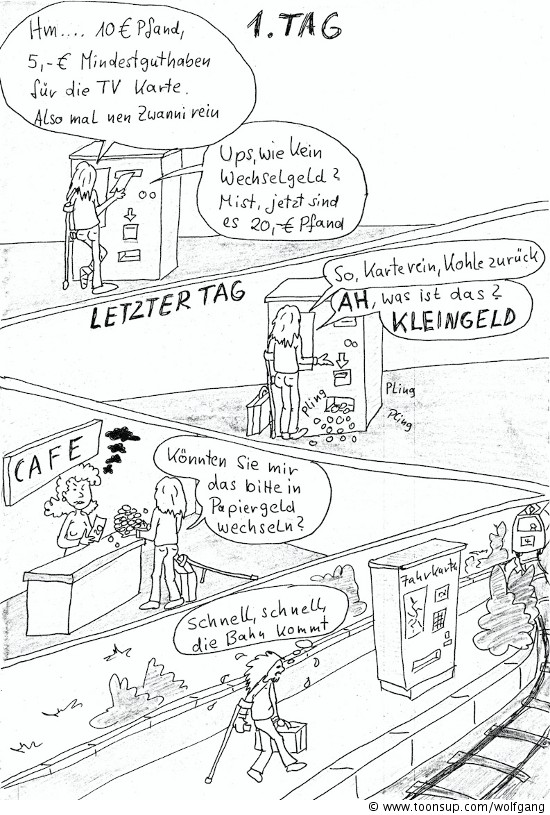 1. TAG
Hm.... 10 € Pfand,
5,-€ Mindestguthaben
für die TV Karte.
Also mal nen Zwanni rein
Ups, wie kein
Wechselgeld?
Mist, jetzt sind
es 20,-€ Pfand
LETZTER TAG
So, Karte rein, Kohle zurück
AH, was ist das?
KLEINGELD
Pling
PLing
PLing
CAFE
Könnten Sie mir
das bitte in
Papiergeld
wechseln?
Schnell, schnell,
die Bahn kommt
Fahrkarte
4
© www.toonsup.com/wolfgang